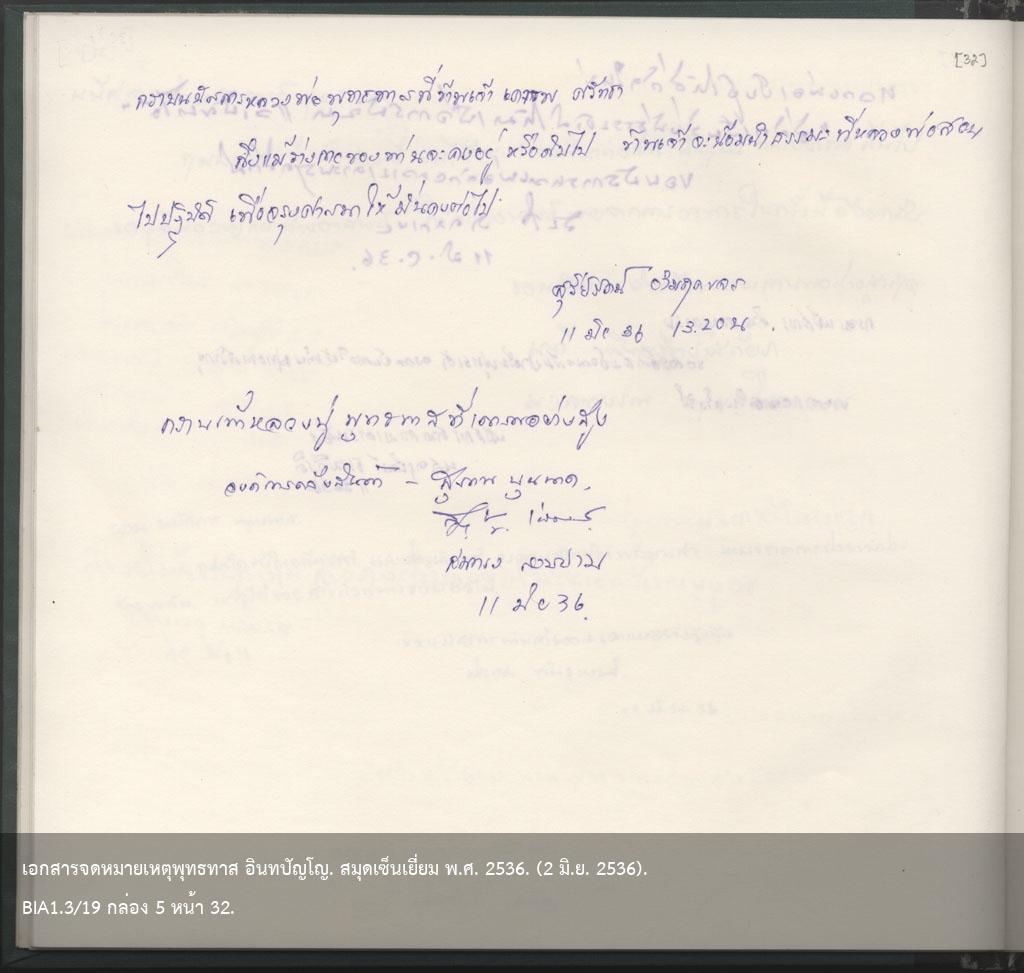 [32]
กราบนมัสการหลวงพ่อพุทธทาสที่ข้าพเจ้า เคารพ ศรัทธา
ถึงแม้ร่างกายของท่านจะคงอยู่ หรือดับไป ข้าพเจ้าจะน้อมนำธรรมะที่หลวงพ่อสอน
ไปปฏิบัติ เพื่อจรุงศาสนาให้มั่นคงต่อไป
11 มิย 36 13.20 น.
กราบเท้าหลวงปู่ พุทธทาสที่เคารพอย่างสูง
องค์การคลังสินค้า -
11 มิย 36.
เอกสารจดหมายเหตุพุทธทาส อินทปัญโญ. สมุดเซ็นเยี่ยม พ.ศ. 2536. (2 มิ.ย. 2536).
BIA1.3/19 กล่อง 5 หน้า 32.